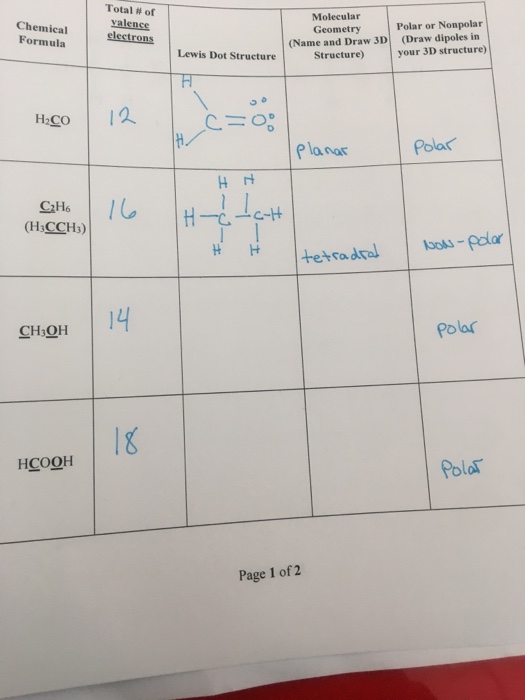 Chemical
Formula
Total # of
valence
electrons
Lewis Dot Structure
Molecular
Geometry
(Name and Draw 3D
Structure)
Polar or Nonpolar
(Draw dipoles in
your 3D structure)
H₂CO
12
H
C=O
H
planar
Polar
C₂H₆
(H₃CCH₃)
16
H H
H-C-C-H
H H
tetradral
NON-polar
CH₃OH
14
polar
HCOOH
18
Polar
Page 1 of 2